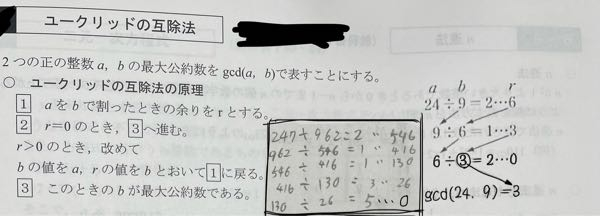 ユークリッドの互除法
2つの正の整数a，bの最大公約数をgcd(a，b)で表すことにする。
○ ユークリッドの互除法の原理
1 aをbで割ったときの余りをrとする。
2 r=0のとき，3へ進む。
r>0のとき，改めて
bの値をa，rの値をbとおいて1に戻る。
3 このときのbが最大公約数である。
247÷962=2…546
962÷546=1…416
546÷416=1…130
416÷130=3…26
130÷26=5…0
a b r
24÷9=2…6
9÷6=1…3
6÷3=2…0
gcd(24. 9)=3